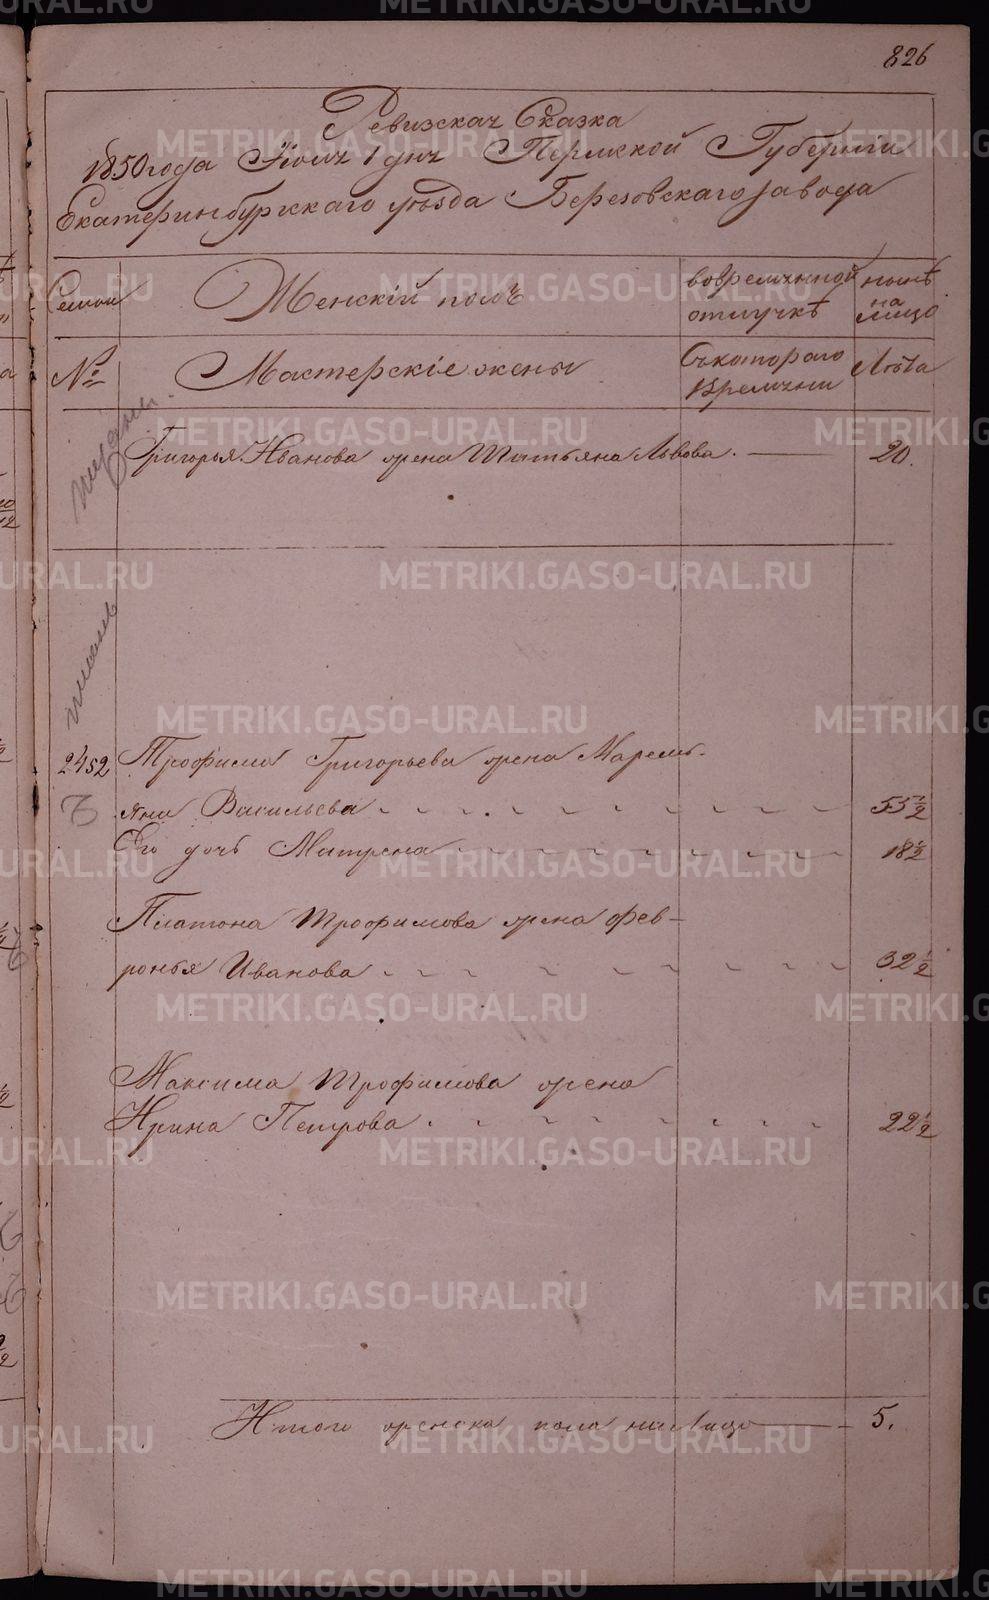 826
Ревизская Сказка
1850 года Июля 1 дня Пермской Губернии
Екатеринбургского уезда Березовского завода
Семьи
Женскій полъ
вовременной отлучкѣ
нынѣ на лицо
№
Мастерскіе жены
Съкотораго времени
Лѣта
Григорья Иванова жена Татьяна Львова. 20.
2452 Трофима Григорьева жена Маремь-
яна Васильева 55 1/2
Его дочь Матрена 18 1/2
Платона Трофимова жена Фев-
ронья Иванова 32 1/2
Максима Трофимова жена
Ирина Петрова 22 1/2
Итого женска пола налицо 5.
METRIKI.GASO-URAL.RU